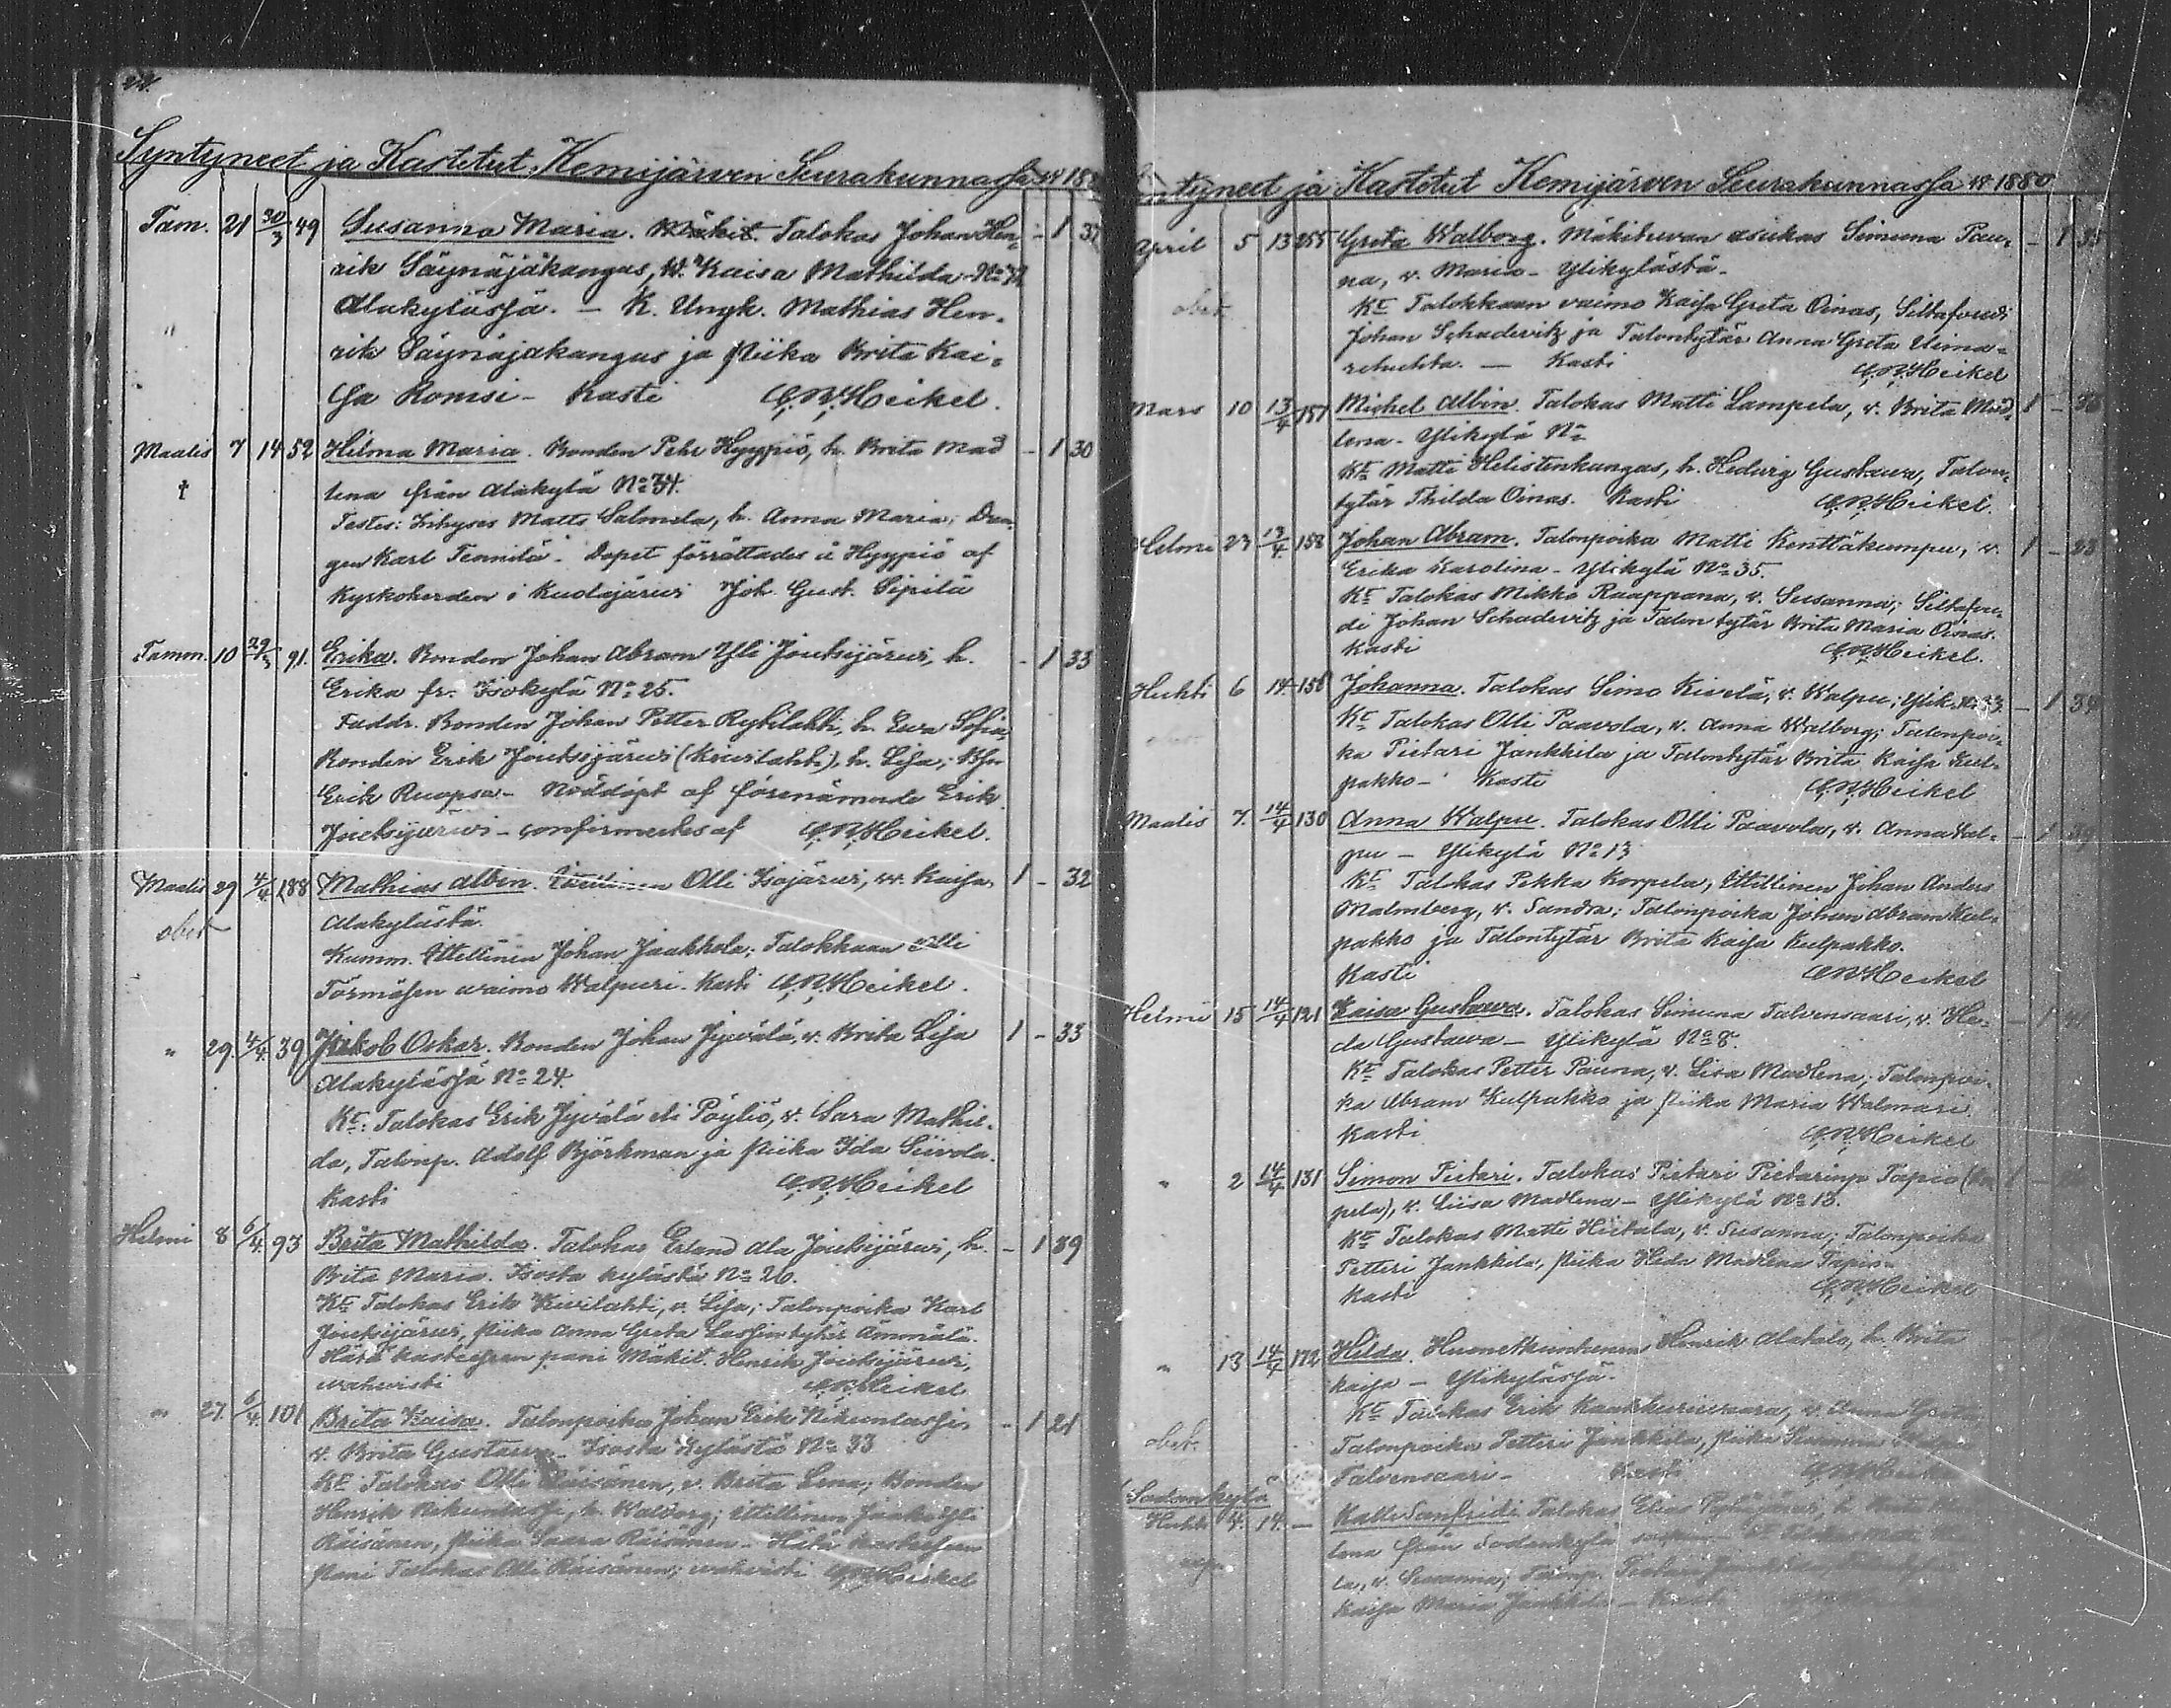 22.
Syntyneet ja Kastetut Kemijärven Seurakunnassa v. 188
Tam. 21 30/3 49 Susanna Maria. Mäkit. Talokas Johan Hen- - 1 37
rik Säynäjäkangas, W. Kaisa Mathilda - No 31
Alakylässä. - K. Ungk. Mathias Hen-
rik Säynäjäkangas ja Piika Brita Kai-
sa Romsi - Kasti C.N.Heikel.
Maalis 7 14 52 Hilma Maria. Bonden Pehr Hyyppiö, h. Brita Mad - 1 30
† lena från Alakylä No 34.
Testes: Inhyses Matts Salmela, h. Anna Maria; Dren-
gen Karl Tennilä. Dopet förrättades å Hyyppiö af
Kyrkoherden i Kuolajärvi Joh. Gust. Sipilä
Tamm. 10 29/3 91. Erika. Bonden Johan Abram Yli Joutsijärwi, h. - 1 33
Erika fr. Isokylä No 25.
Faddr. Bonden Johan Petter Rytilahti, h. Ewa Sofia
Bonden Erik Joutsijärwi (Kiwilahti), h. Lisa;
Erik Ruopsa - Nöddöpt af förenämnde Erik
Joutsijärwi - confirmertes af C.N.Heikel.
Maalis 29 4/4 188 Mathias Albin. Itsellinen Olli Isojärwi, w. Kaisa 1 - 32
obiit Alakylästä
Kumm. Itsellinen Johan Jaakkola; Talokkaan Olli
Törmäsen waimo Walpuri. Kasti C.N.Heikel.
" 29. 4/4. 39 Jakob Oskar. Bonden Johan Jyvälä, v. Brita Lisa 1 - 33
Alakylässä No 24.
Kt: Talokas Erik Jyvälä eli Pöyliö, v. Sara Mathil-
da, Talonp. Adolf Björkman ja Piika Ida Siivola.
Kasti C.N.Heikel
Helmi 8 6/4. 93 Brita Mathilda. Talokas Erland Ala Joutsijärwi, h. - 1 39
Brita Maria. Isosta kylästä No 26.
Kt Talokas Erik Kiwilahti, v. Lisa; Talonpoika Karl
Joutsijärwi, Piika Anna Greta Lassintytär Ämmälä.
Hätä kasteesen pani Mäkit. Henrik Joutsijärwi,
wahwisti C.N.Heikel
" 27. 6/4. 101 Brita Kaisa. Talonpoika Johan Erik Nikunlassi, - 1 21
v. Brita Gustawa - Isosta kylästä No 33
Kt Talokas Olli Räisänen, v. Brita Lena; Bonden
Henrik Nikunlassi, h. Walborg; Itsellinen Jaako Yli
Räisänen, Piika Saara Räisänen - Hätä kasteesen
pani Talokas Olli Räisänen; wahwisti C.N.Heikel
tyneet ja Kastetut Kemijärven Seurakunnassa v. 1880
April 5 13 255 Greta Walborg. Mäkituwan asukas Simuna Pau- - 1 35
na, v. Maria - Ylikylästä -
obiit Kt Talokkaan vaimo Kaisa Greta Oinas, Siltafouti
Johan Schadevitz ja Talontytär Anna Greta Uima-
- Kasti C.N.Heikel
Mars 10 13/4 157 Mickel Albin. Talokas Matti Lampela, v. Brita Mad- 1 - 36
lena - Ylikylä No
Kt Matti Helistenkangas, h. Hedvig Gustawa, Talon-
tytär Thilda Oinas. Kasti C.N.Heikel.
Helmi 23 13/4 158 Johan Abram. Talonpoika Matti Kenttäkumpu, v. 1 - 23
Erika Karolina - Ylikylä No 35.
Kt Talokas Mikko Raappana, v. Susanna; Siltafou-
di Johan Schadevitz ja Talon tytär Brita Maria Oinas.
Kasti C.N.Heikel.
Huhti 6 14 158 Johanna. Talokas Simo Kivelä, v. Walpu; Ylik. No 33 - 1 34
Kt Talokas Olli Paavola, v. Anna Walborg; Talonpoi-
ka Pietari Jankkila ja Talontytär Brita Kaisa Kul-
pakko - Kasti C.N.Heikel
Maalis 7. 14/4 130 Anna Walpu. Talokas Olli Paavola, v. Anna Wal- - 1 39
pu - Ylikylä No 13
Kt Talokas Pekka Korpela, Itsellinen Johan Anders
Malmberg, v. Sandra; Talonpoika Johan Abram Kul-
pakko ja Talontytär Brita Kaisa Kulpakko.
Kasti C.N.Heikel
Helmi 15 14/4 121 Kaisa Gustawa. Talokas Simuna Talvensaari, v. He- - 1
da Gustawa - Ylikylä No 8.
Kt Talokas Petter Pauna, v. Lisa Madlena; Talonpoi-
ka Abram Kulpakko ja Piika Maria Walmari
Kasti C.N.Heikel
" 2 14/4 131 Simon Pietari. Talokas Pietari Pietarinp. Tapio 1 -
pela), v. Liisa Madlena - Ylikylä No 13.
Kt Talokas Matti Hietala, v. Susanna; Talonpoika
Petteri Jankkila, Piika Heda Madlena Tapio -
Kasti C.N.Heikel
" 13 14/4 172 Hilda. Huonetkuntainen Henrik Alatalo, h. Brita
Kaisa - Ylikylässä.
Kt Talokas Erik Kaakkurivaara, v. Anna Greta,
obiit. Talonpoika Petteri Jankkila, Piika Susanna Walpu
Talvensaari - Kasti C.N.Heikel
Sodankylä
Huhti 4. 14. - Kalle Sanfridi. Talokas Elias Pyhäjärvi, h. Brita
lena från Sodankylä
la, v. Susanna; Talonp. Pietari Jankkila,
Kaisa Maria Jankkila - Kasti